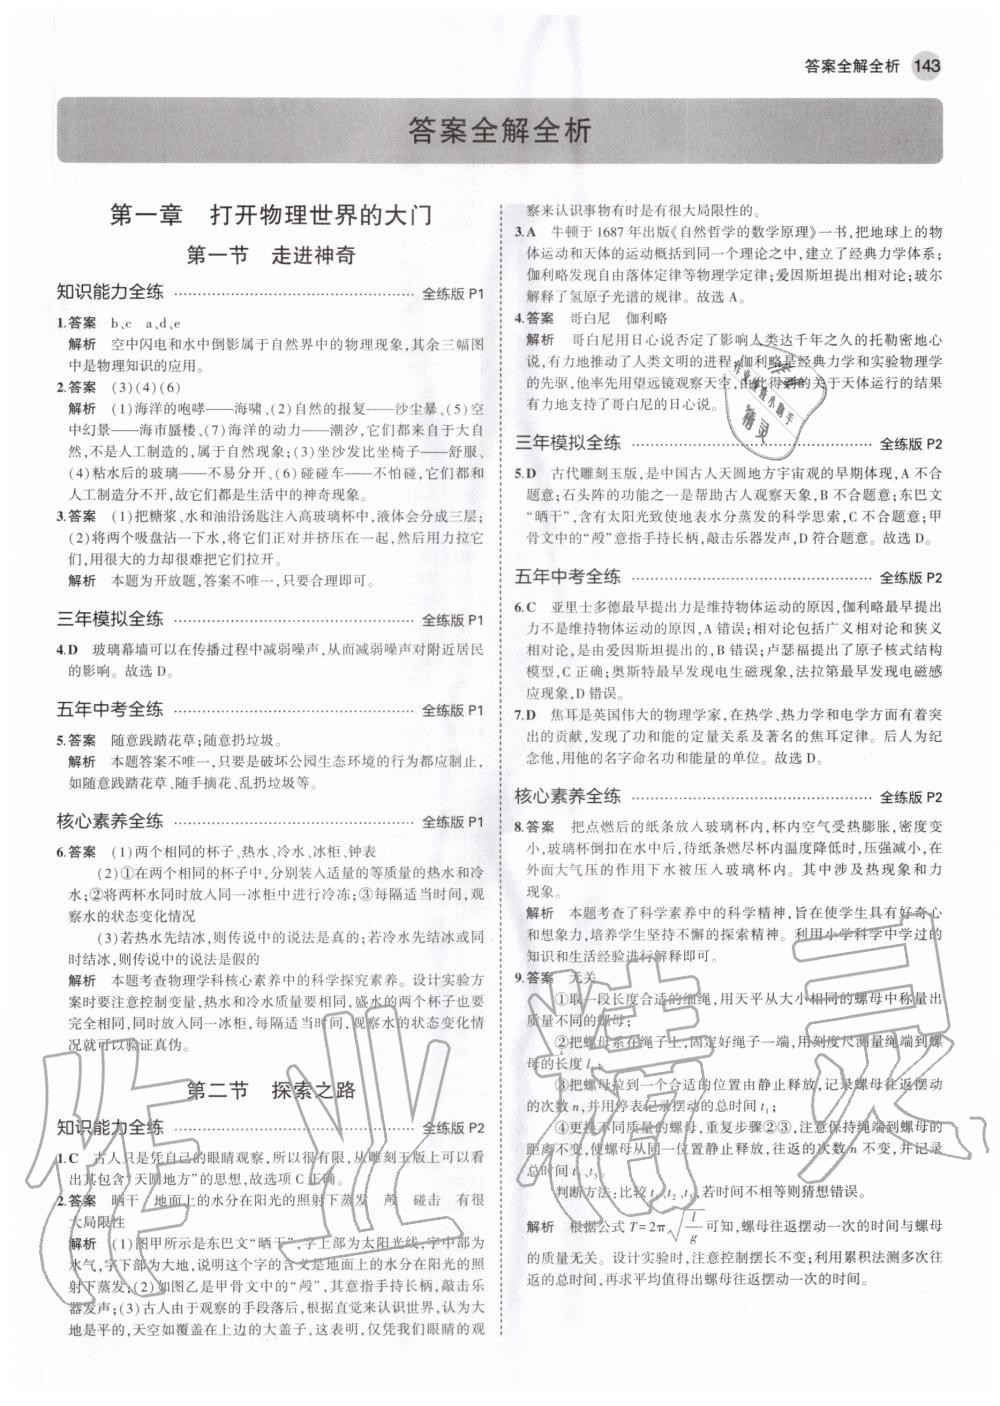 答案全解全析 143
答案全解全析
第一章 打开物理世界的大门
第一节 走进神奇
知识能力全练 全练版 P1
1.答案 b、c a、d、e
解析 空中闪电和水中倒影属于自然界中的物理现象,其余三幅图
中是物理知识的应用。
2.答案 (3)(4)(6)
解析 (1)海洋的咆哮——海啸、(2)自然的报复——沙尘暴、(5)空
中幻景——海市蜃楼、(7)海洋的动力——潮汐,它们都属于自
然,不是人工制造的,属于自然现象;(3)坐沙发比坐椅子——舒服、
(4)粘水后的玻璃——不易分开、(6)碰碰车——不怕碰,它们都和
人工制造分不开,故它们都是生活中的神奇现象。
3.答案 (1)把糖浆、水和油沿汤匙注入高玻璃杯中,液体会分成三层;
(2)将两个吸盘沾一下水,将它们正对并挤压在一起,然后用力拉它
们,用很大的力却很难把它们拉开。
解析 本题为开放题,答案不唯一,只要合理即可。
三年模拟全练 全练版 P1
4.D 玻璃幕墙可以在传播过程中减弱噪声,从而减弱噪声对附近居民
的影响。故选 D。
五年中考全练 全练版 P1
5.答案 随意践踏花草;随意扔垃圾。
解析 本题答案不唯一,只要是破坏公园生态环境的行为都应制止,
如随意践踏花草、随手摘花、乱扔垃圾等。
核心素养全练 全练版 P1
6.答案 (1)两个相同的杯子、热水、冷水、冰柜、钟表
(2)①在两个相同的杯子中,分别装入适量的等质量的热水和冷
水;②将两杯水同时放入同一冰柜中进行冷冻;③每隔适当时间,观
察水的状态变化情况
(3)若热水先结冰,则传说中的说法是真的;若冷水先结冰或同
时结冰,则传说中的说法是假的
解析 本题考查物理学科核心素养中的科学探究素养。设计实验方
案时要注意控制变量,热水和冷水质量要相同,盛水的两个杯子也要
完全相同,同时放入同一冰柜,每隔适当时间,观察水的状态变化情
况就可以验证真伪。
第二节 探索之路
知识能力全练 全练版 P2
1.C 古人只是凭自己的眼睛观察,所以很有限,从雕刻玉版上可以看
出其包含“天圆地方”的思想,故选项 C 正确。
2.答案 晒干 地面上的水分在阳光的照射下蒸发 殸 碰击 有很
大局限性
解析 (1)图甲所示是东巴文“晒干”,字上部为太阳光线,字中部为
水气,字下部为大地,说明这个字的含义是地面上的水分在阳光的照
射下蒸发;(2)如图乙是甲骨文中的“殸”,其意指手持长柄,敲击乐
器发声;(3)古人由于观察的手段落后,根据直觉来认识世界,认为大
地是平的,天空如覆盖在上边的大盖子,这表明,仅凭我们眼睛的观
察来认识事物有时是有很大局限性的。
3.A 牛顿于 1687 年出版《自然哲学的数学原理》一书,把地球上的物
体运动和天体的运动概括到同一个理论之中,建立了经典力学体系;
伽利略发现自由落体定律等物理学定律;爱因斯坦提出相对论;玻尔
解释了氢原子光谱的规律。故选 A。
4.答案 哥白尼 伽利略
解析 哥白尼用日心说否定了影响人类达千年之久的托勒密地心
说,有力地推动了人类文明的进程,伽利略是经典力学和实验物理学
的先驱,他率先用望远镜观察天空,由此得到的关于天体运行的结果
有力地支持了哥白尼的日心说。
三年模拟全练 全练版 P2
5.D 古代雕刻玉版,是中国古人天圆地方宇宙观的早期体现,A 不合
题意;石头阵的功能之一是帮助古人观察天象,B 不合题意;东巴文
“晒干”,含有太阳光致使地表水分蒸发的科学思索,C 不合题意;甲
骨文中的“殸”意指手持长柄,敲击乐器发声,D 符合题意。故选 D。
五年中考全练 全练版 P2
6.C 亚里士多德最早提出力是维持物体运动的原因,伽利略最早提出
力不是维持物体运动的原因,A 错误;相对论包括广义相对论和狭义
相对论,是由爱因斯坦提出的,B 错误;卢瑟福提出了原子核式结构
模型,C 正确;奥斯特最早发现电生磁现象,法拉第最早发现电磁感
应现象,D 错误。
7.D 焦耳是英国伟大的物理学家,在热学、热力学和电学方面有着突
出的贡献,发现了功和能的定量关系及著名的焦耳定律。后人为纪
念他,用他的名字命名功和能量的单位。故选 D。
核心素养全练 全练版 P2
8.答案 把点燃后的纸条放入玻璃杯内,杯内空气受热膨胀,密度变
小,玻璃杯倒扣在水中后,待纸条燃尽杯内温度降低时,压强减小,在
外面大气压的作用下水被压入玻璃杯内。其中涉及热现象和力
现象。
解析 本题考查了科学素养中的科学精神,旨在使学生具有好奇心
和想象力,培养学生坚持不懈的探索精神。利用小学科学中学过的
知识和生活经验进行解释即可。
9.答案 无关。
①取一段长度合适的细绳,用天平从大小相同的螺母中称量出
质量不同的螺母;
②把螺母系在绳子上,固定好绳子一端,用刻度尺测量绳端到螺母的
长度 l;
③把螺母拉到一个合适的位置由静止释放,记录螺母往返摆动
的次数 n,并用停表记录摆动的总时间 t₁;
④更换不同质量的螺母,重复步骤②③,注意保持绳端到螺母的
距离不变,使螺母从同一位置静止释放,往返的次数 n 不变,并记录
总时间 t₂、t₃。
判断方法:比较 t₁、t₂、t₃,若时间不相等则猜想错误。
解析 根据公式 T=2π√(l/g) 可知,螺母往返摆动一次的时间与螺母
的质量无关。设计实验时,注意控制摆长不变;利用累积法测多次往
返的总时间,再求平均值得出螺母往返摆动一次的时间。
作业精灵